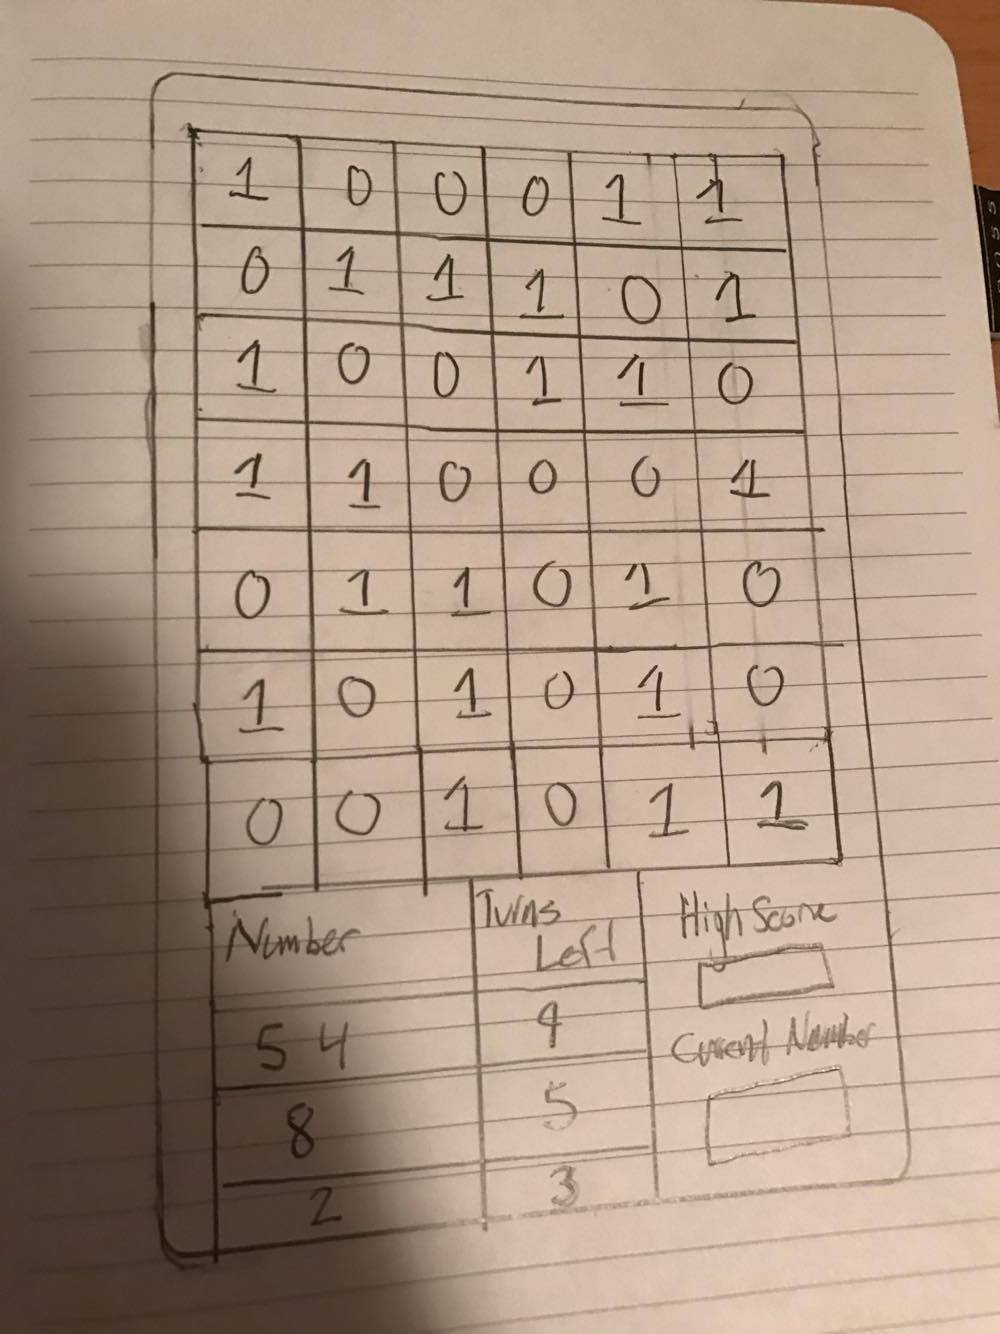 1 0 0 0 1 1
0 1 1 1 0 1
1 0 0 1 1 0
1 1 0 0 0 1
0 1 1 0 1 0
1 0 1 0 1 0
0 0 1 0 1 1
Number
Turns
Left
High Score
54
4
Current Number
8
5
2
3